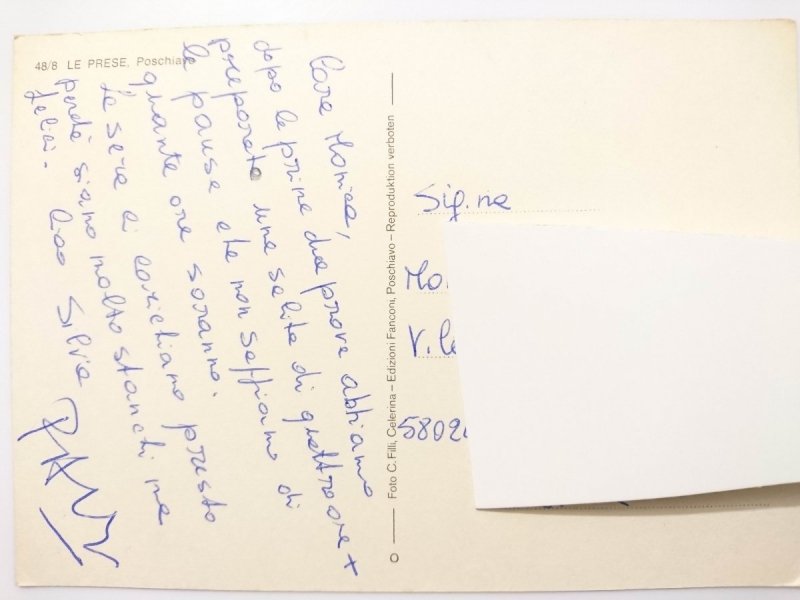 48/8 LE PRESE, Poschiavo
Cara Monica,
dopo le prime due prove abbiamo
preparato una salita di quattro ore +
le pause che non sappiamo di
quante ore saranno.
Le sera ci corichiamo presto
perché siamo molto stanchi ma
felici. Ciao Silvia
Foto C. Filli, Celerina – Edizioni Fanconi, Poschiavo – Reproduktion verboten
Sig.na
Mo
V. le
5802